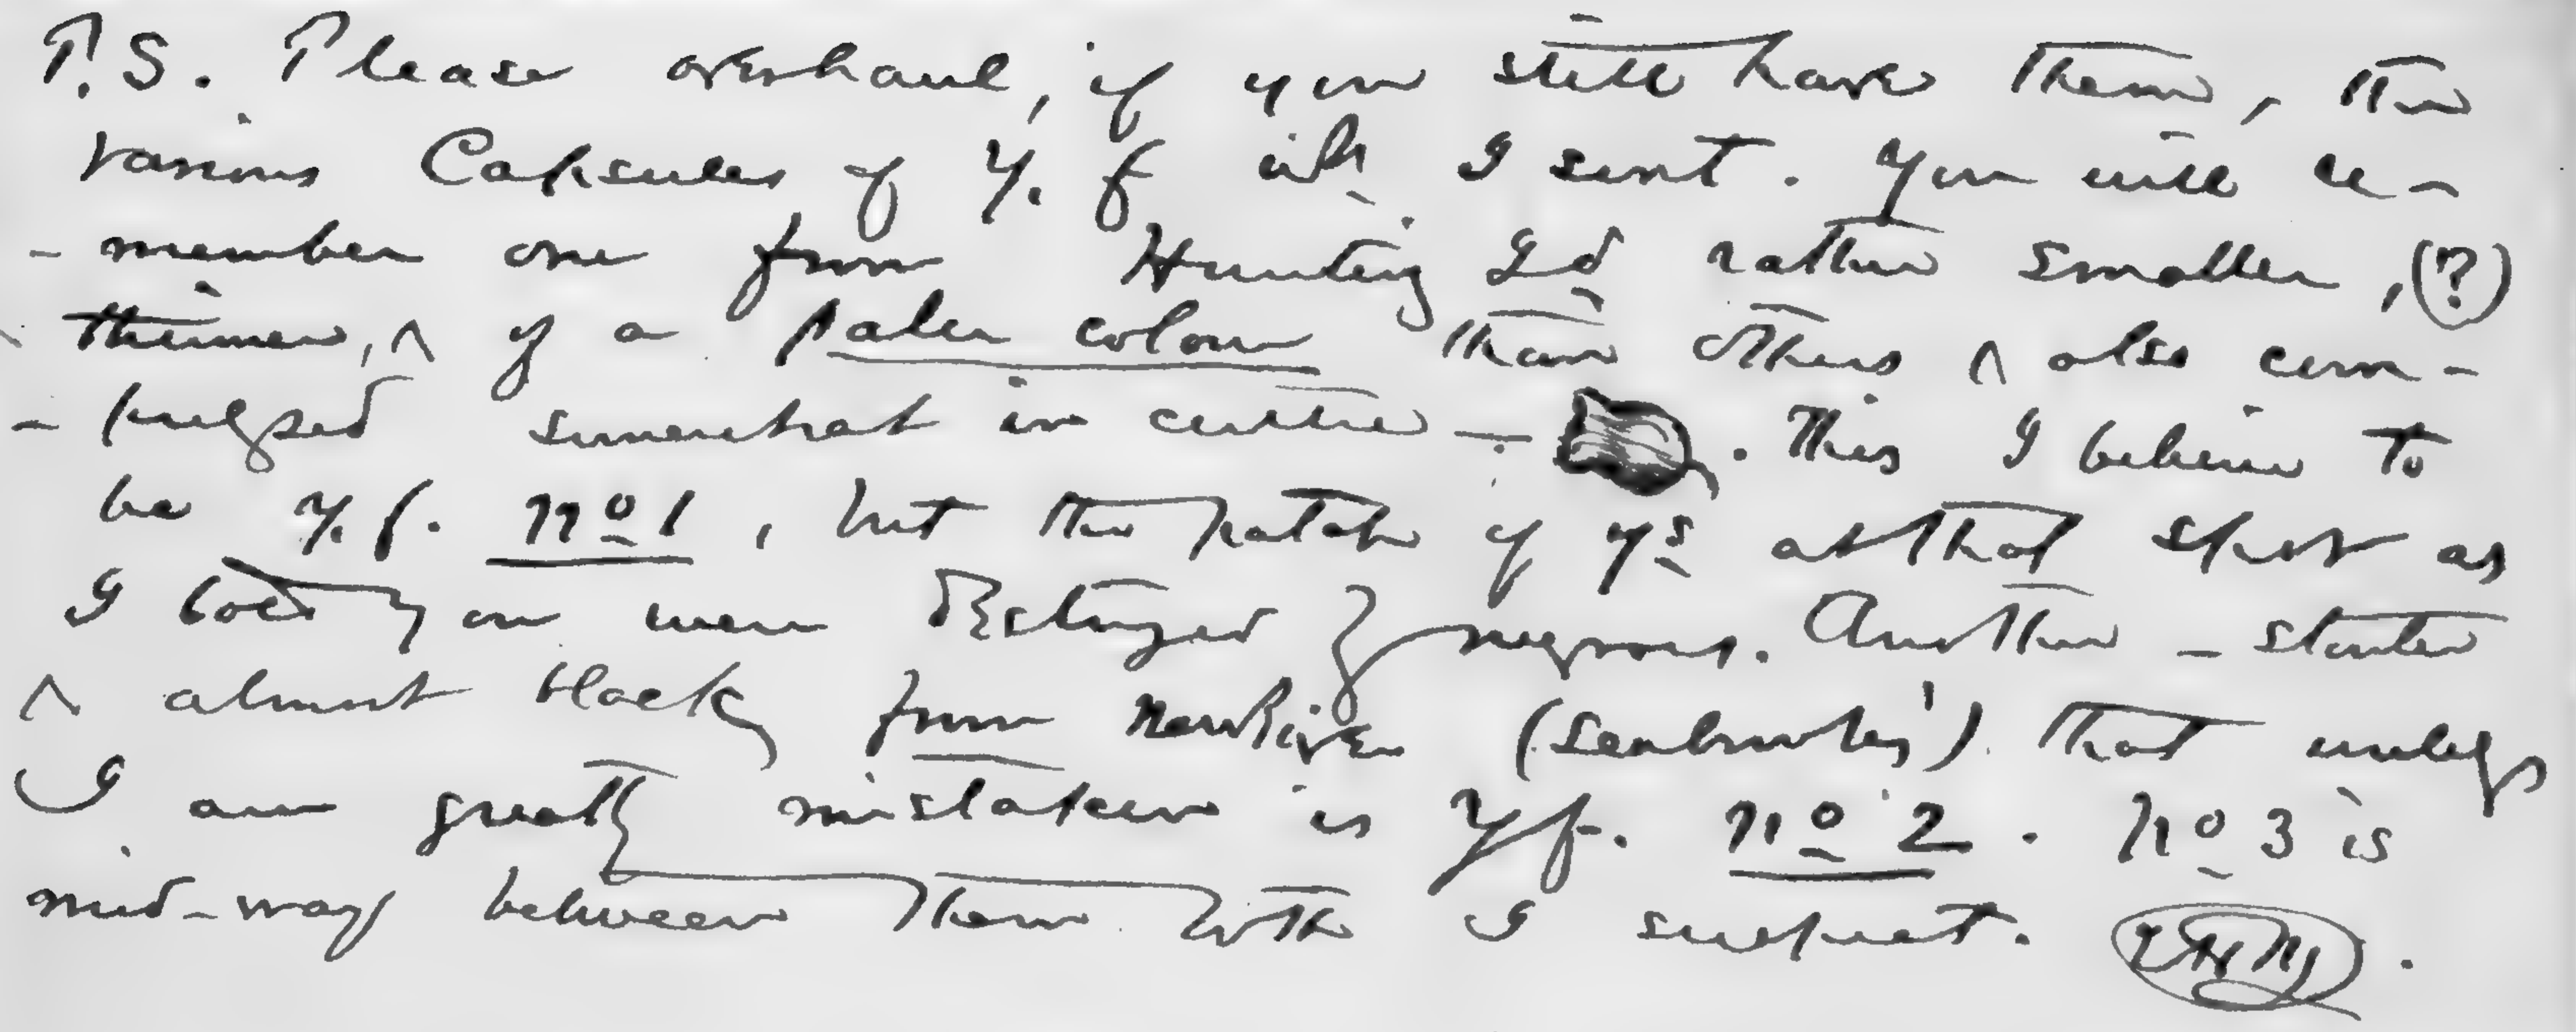 P.S. Please overhaul, if you still have them, the
various Capsules of Y. f wh. I sent. You will re-
-member one from Hunting Gd rather smaller, (?)
thinner, & of a paler colour than others & also com-
-pressed somewhat in centre - . This I believe to
be Y. f. No 1, but the patch of Ys at that spot as
I told you were destroyed by negroes. Another - stouter
& almost black, from New River (Seabrook's) that unless
I am greatly mistaken is Yf. No 2. No 3 is
mid-way between them both I suspect.